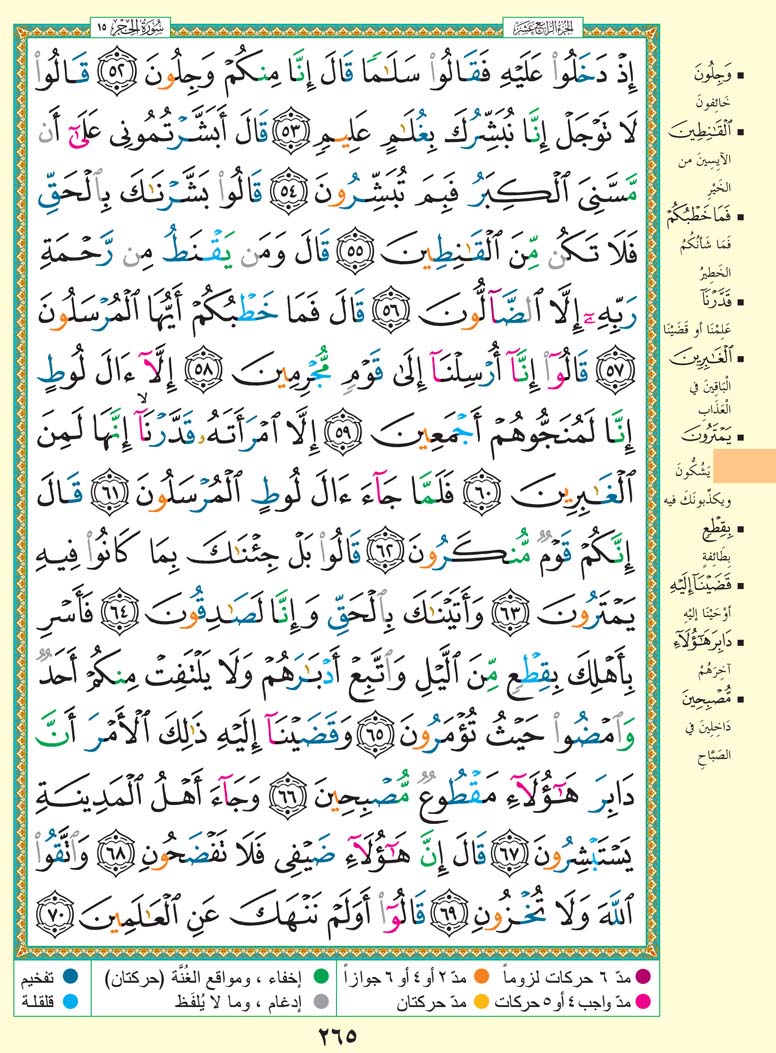 الجزء الرابع عشر
سُورَةُ الحِجر ١٥
إِذْ دَخَلُوا۟ عَلَيْهِ فَقَالُوا۟ سَلَـٰمًا قَالَ إِنَّا مِنكُمْ وَجِلُونَ ٥٢ قَالُوا۟
لَا تَوْجَلْ إِنَّا نُبَشِّرُكَ بِغُلَـٰمٍ عَلِيمٍ ٥٣ قَالَ أَبَشَّرْتُمُونِى عَلَىٰٓ أَن
مَّسَّنِىَ ٱلْكِبَرُ فَبِمَ تُبَشِّرُونَ ٥٤ قَالُوا۟ بَشَّرْنَـٰكَ بِٱلْحَقِّ
فَلَا تَكُن مِّنَ ٱلْقَـٰنِطِينَ ٥٥ قَالَ وَمَن يَقْنَطُ مِن رَّحْمَةِ
رَبِّهِۦٓ إِلَّا ٱلضَّآلُّونَ ٥٦ قَالَ فَمَا خَطْبُكُمْ أَيُّهَا ٱلْمُرْسَلُونَ
٥٧ قَالُوٓا۟ إِنَّآ أُرْسِلْنَآ إِلَىٰ قَوْمٍ مُّجْرِمِينَ ٥٨ إِلَّآ ءَالَ لُوطٍ
إِنَّا لَمُنَجُّوهُمْ أَجْمَعِينَ ٥٩ إِلَّا ٱمْرَأَتَهُۥ قَدَّرْنَآ ۙ إِنَّهَا لَمِنَ
ٱلْغَـٰبِرِينَ ٦٠ فَلَمَّا جَآءَ ءَالَ لُوطٍ ٱلْمُرْسَلُونَ ٦١ قَالَ
إِنَّكُمْ قَوْمٌ مُّنكَرُونَ ٦٢ قَالُوا۟ بَلْ جِئْنَـٰكَ بِمَا كَانُوا۟ فِيهِ
يَمْتَرُونَ ٦٣ وَأَتَيْنَـٰكَ بِٱلْحَقِّ وَإِنَّا لَصَـٰدِقُونَ ٦٤ فَأَسْرِ
بِأَهْلِكَ بِقِطْعٍ مِّنَ ٱلَّيْلِ وَٱتَّبِعْ أَدْبَـٰرَهُمْ وَلَا يَلْتَفِتْ مِنكُمْ أَحَدٌ
وَٱمْضُوا۟ حَيْثُ تُؤْمَرُونَ ٦٥ وَقَضَيْنَآ إِلَيْهِ ذَٰلِكَ ٱلْأَمْرَ أَنَّ
دَابِرَ هَـٰٓؤُلَآءِ مَقْطُوعٌ مُّصْبِحِينَ ٦٦ وَجَآءَ أَهْلُ ٱلْمَدِينَةِ
يَسْتَبْشِرُونَ ٦٧ قَالَ إِنَّ هَـٰٓؤُلَآءِ ضَيْفِى فَلَا تَفْضَحُونِ ٦٨ وَٱتَّقُوا۟
ٱللَّهَ وَلَا تُخْزُونِ ٦٩ قَالُوٓا۟ أَوَلَمْ نَنْهَكَ عَنِ ٱلْعَـٰلَمِينَ ٧٠
▪ وَجِلُونَ
خائفونَ
▪ ٱلْقَـٰنِطِينَ
الآيسِينَ من
الخَيْرِ
▪ فَمَا خَطْبُكُمْ
فَمَا شَأنُكُمُ
الخَطِيرُ
▪ قَدَّرْنَآ
عَلِمْنَا أو قَضَيْنَا
▪ ٱلْغَـٰبِرِينَ
البَاقِينَ في
العَذَابِ
▪ يَمْتَرُونَ
يَشُكُّونَ
ويكذّبونَكَ فيه
▪ بِقِطْعٍ
بِطَائِفةٍ
▪ قَضَيْنَآ إِلَيْهِ
أوْحَيْنَا إليْهِ
▪ دَابِرَ هَـٰٓؤُلَآءِ
آخِرَهُمْ
▪ مُّصْبِحِينَ
دَاخِلِينَ في
الصَّبَاحِ
● مدّ ٦ حركات لزوماً ● مدّ ٢ أو ٤ أو ٦ جوازاً
● مدّ واجب ٤ أو ٥ حركات ● مدّ حركتان
● إخفاء ، ومواقع الغُنَّة (حركتان)
● إدغام ، وما لا يُلفَظ
● تفخيم
● قلقلة
٢٦٥